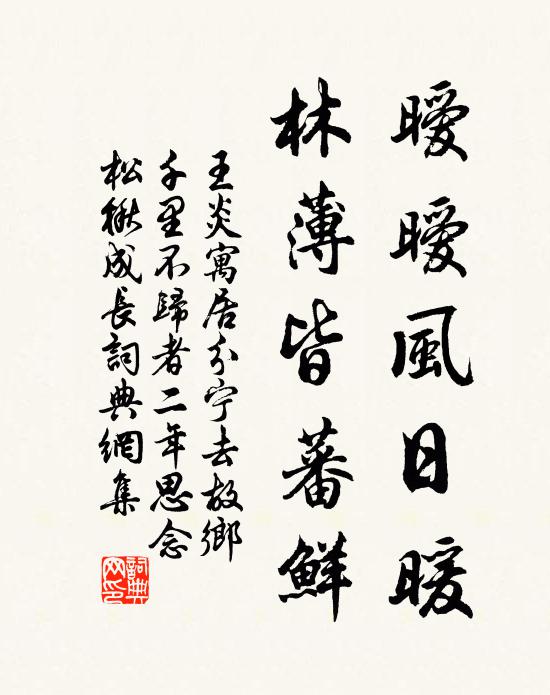 曖曖風日暖
林薄皆蕃鮮
王炎寓居分宁去故鄉
千里不歸者二年思念
松楸成長詞典網集
詞典
网印